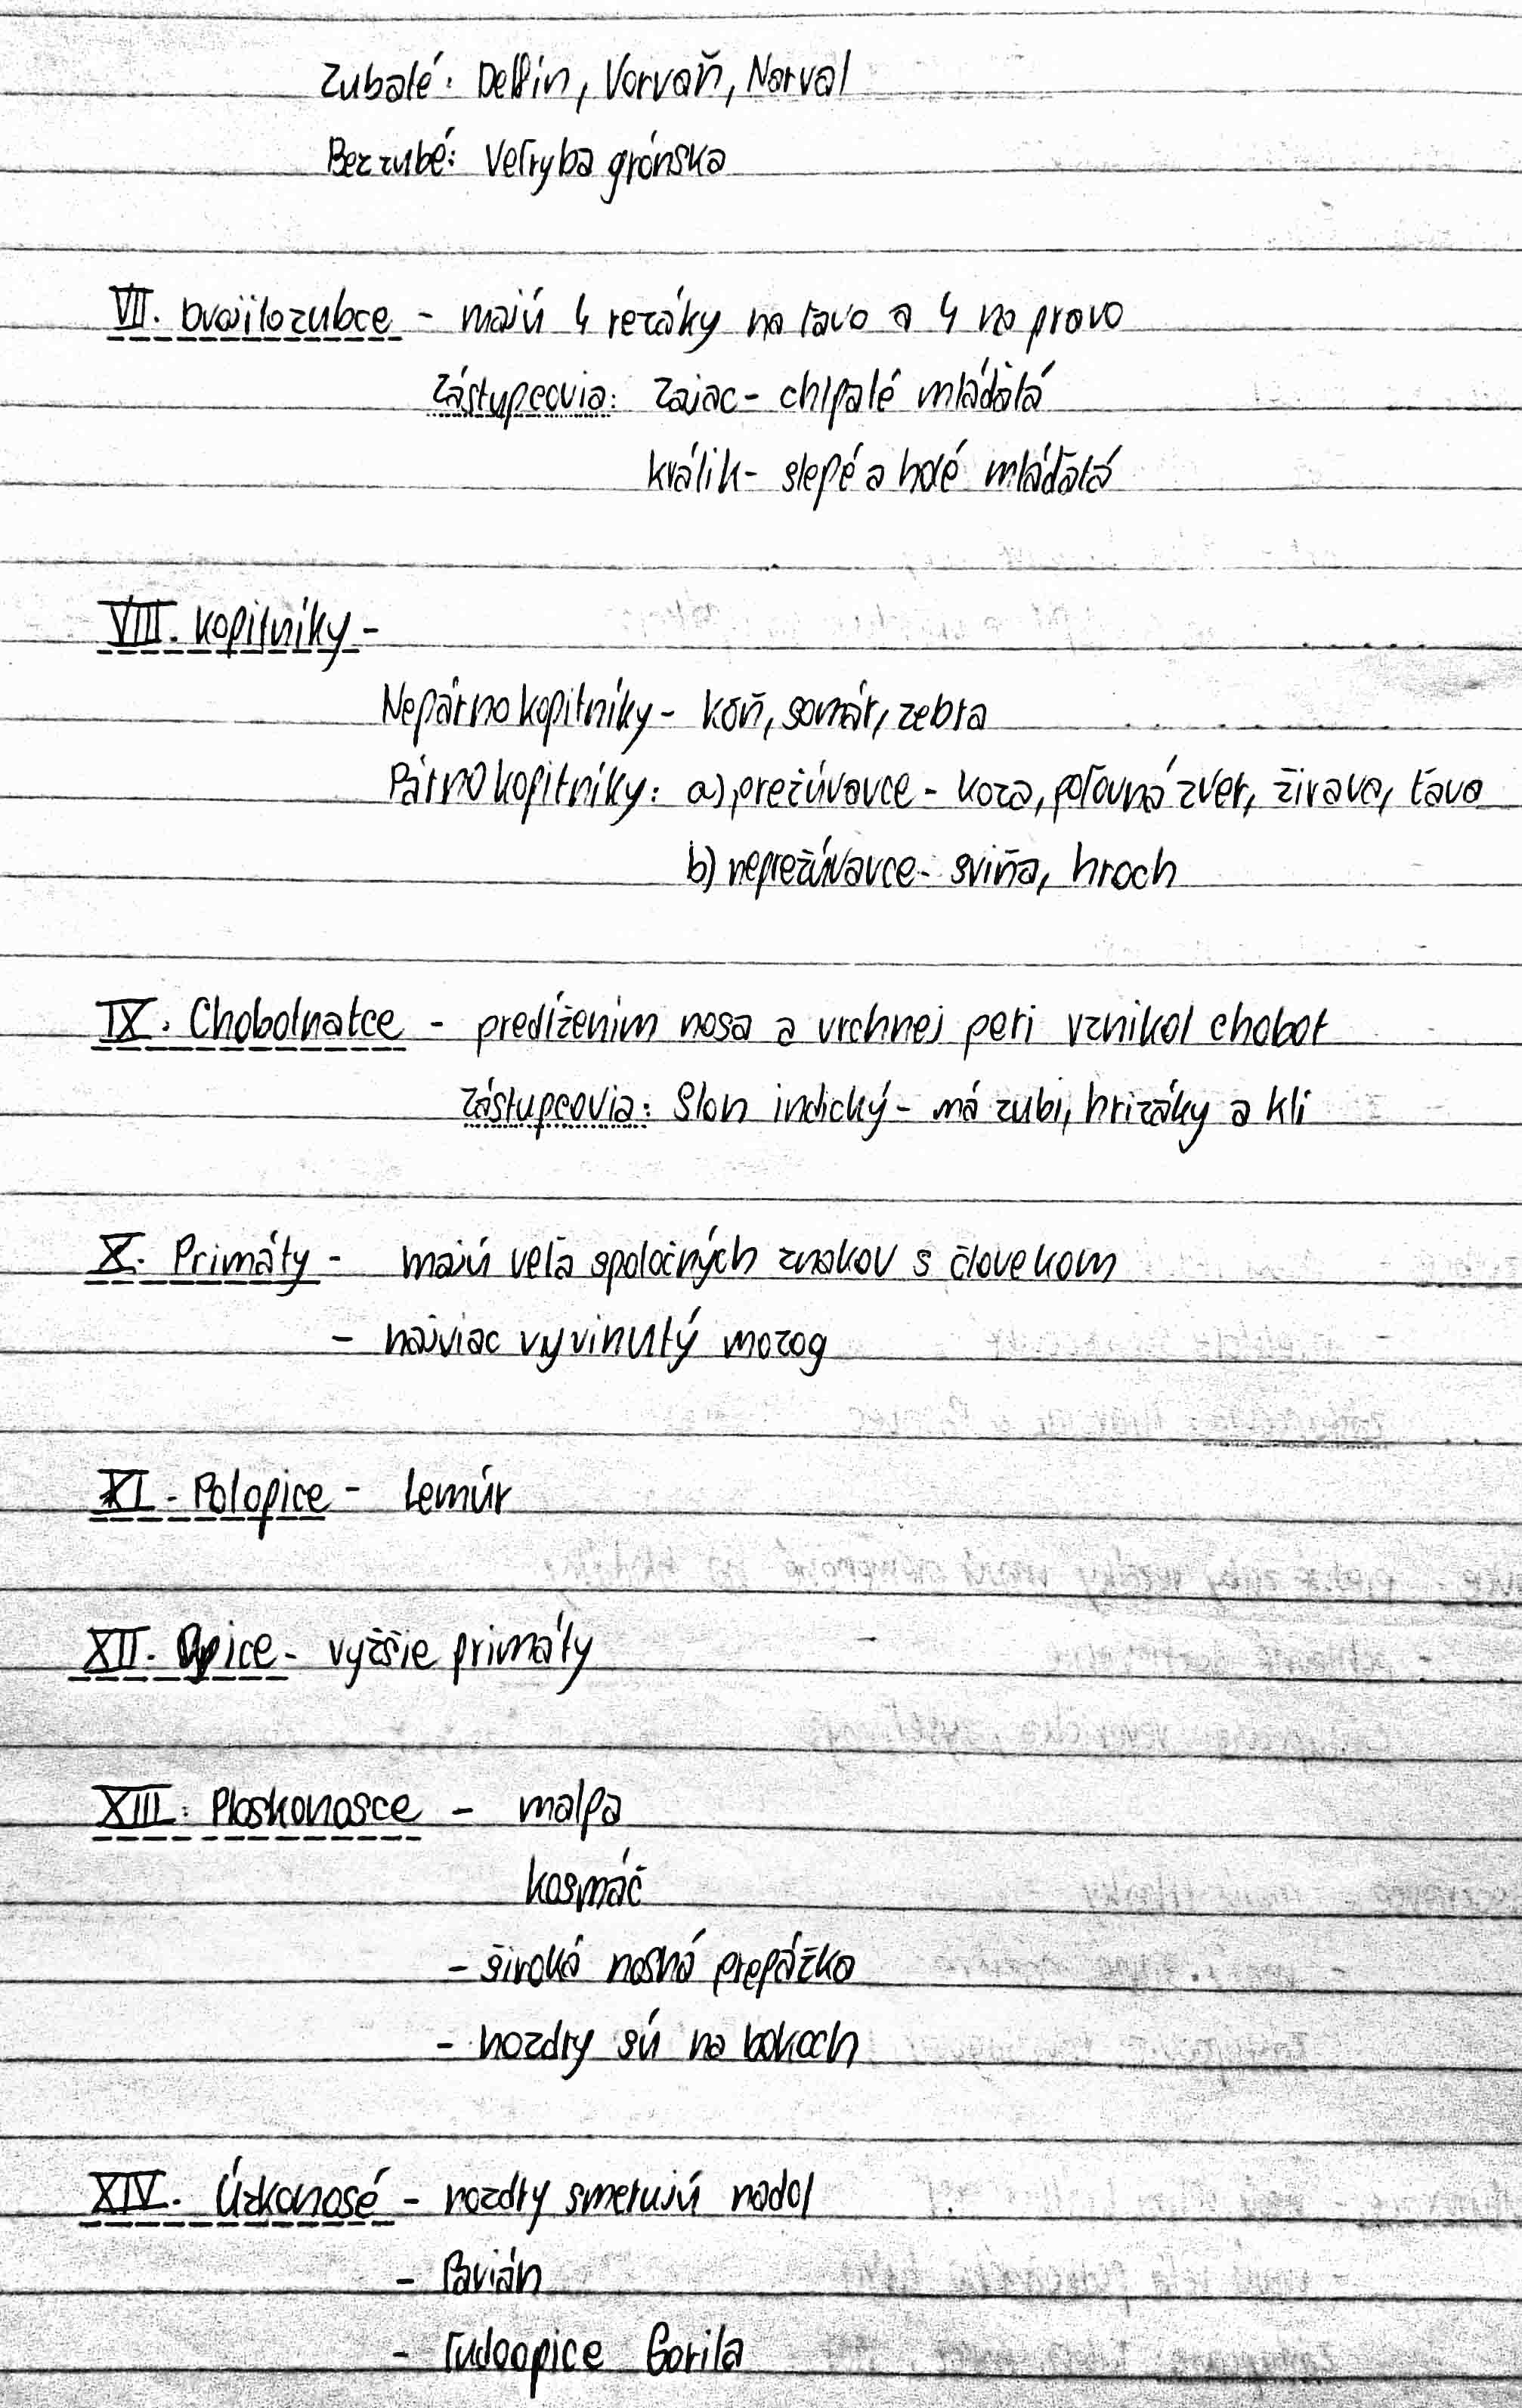 Zubaté: Delfín, Vorvaň, Narval
Bezzubé: Veľryba grónska
VII. Dvojitozubce - majú 4 rezáky na ľavo a 4 na pravo
Zástupcovia: Zajac - chlpaté mláďatá
králik - slepé a holé mláďatá
VIII. Kopitníky -
Nepárnokopitníky - kôň, somár, zebra
Párnokopitníky: a) prežúvavce - koza, poľovná zver, žirava, ťava
b) neprežúvavce - sviňa, hroch
IX. Chobotnatce - predĺžením nosa a vrchnej peri vznikol chobot
Zástupcovia: Slon indický - má zubi, hrizáky a kli
X. Primáty - majú veľa spoločných znakov s človekom
- najviac vyvinutý mozog
XI. Polopice - Lemúr
XII. Opice - vyžšie primáty
XIII. Ploskonosce - malpa
kosmáč
- široká nosná prepážka
- nozdry sú na bokoch
XIV. Úzkonosé - nozdry smerujú nadol
- Pavián
- ľudoopice Gorila